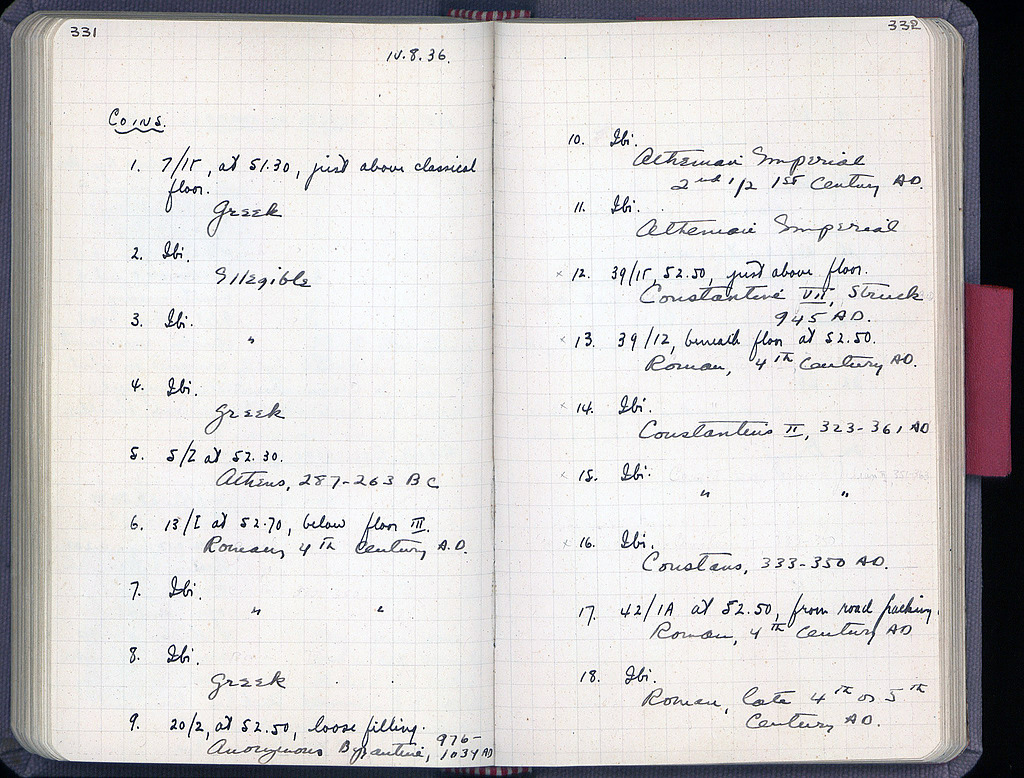 331
10.8.36.
Coins.
1. 7/15, at 51.30, just above classical
floor.
Greek
2. Ibi.
Illegible
3. Ibi.
"
4. Ibi.
Greek
5. 5/Z at 52.30.
Athens, 287-263 BC
6. 13/I at 52.70, below floor III.
Roman, 4th Century A.D.
7. Ibi.
" "
8. Ibi.
Greek
9. 20/2, at 52.50, loose filling.
Anonymous Byzantine, 976-
1034 AD
332
10. Ibi.
Athenian Imperial
2nd 1/2 1st Century AD.
11. Ibi.
Athenian Imperial
x 12. 39/15, 52.50, just above floor.
Constantine VII, Struck
945 AD.
x 13. 39/12, beneath floor at 52.50.
Roman, 4th Century AD.
x 14. Ibi.
Constantius II, 323-361 AD
x 15. Ibi.
" "
x 16. Ibi.
Constans, 333-350 AD.
17. 42/1A at 52.50, from road packing.
Roman, 4th Century AD
18. Ibi.
Roman, late 4th or 5th
Century AD.